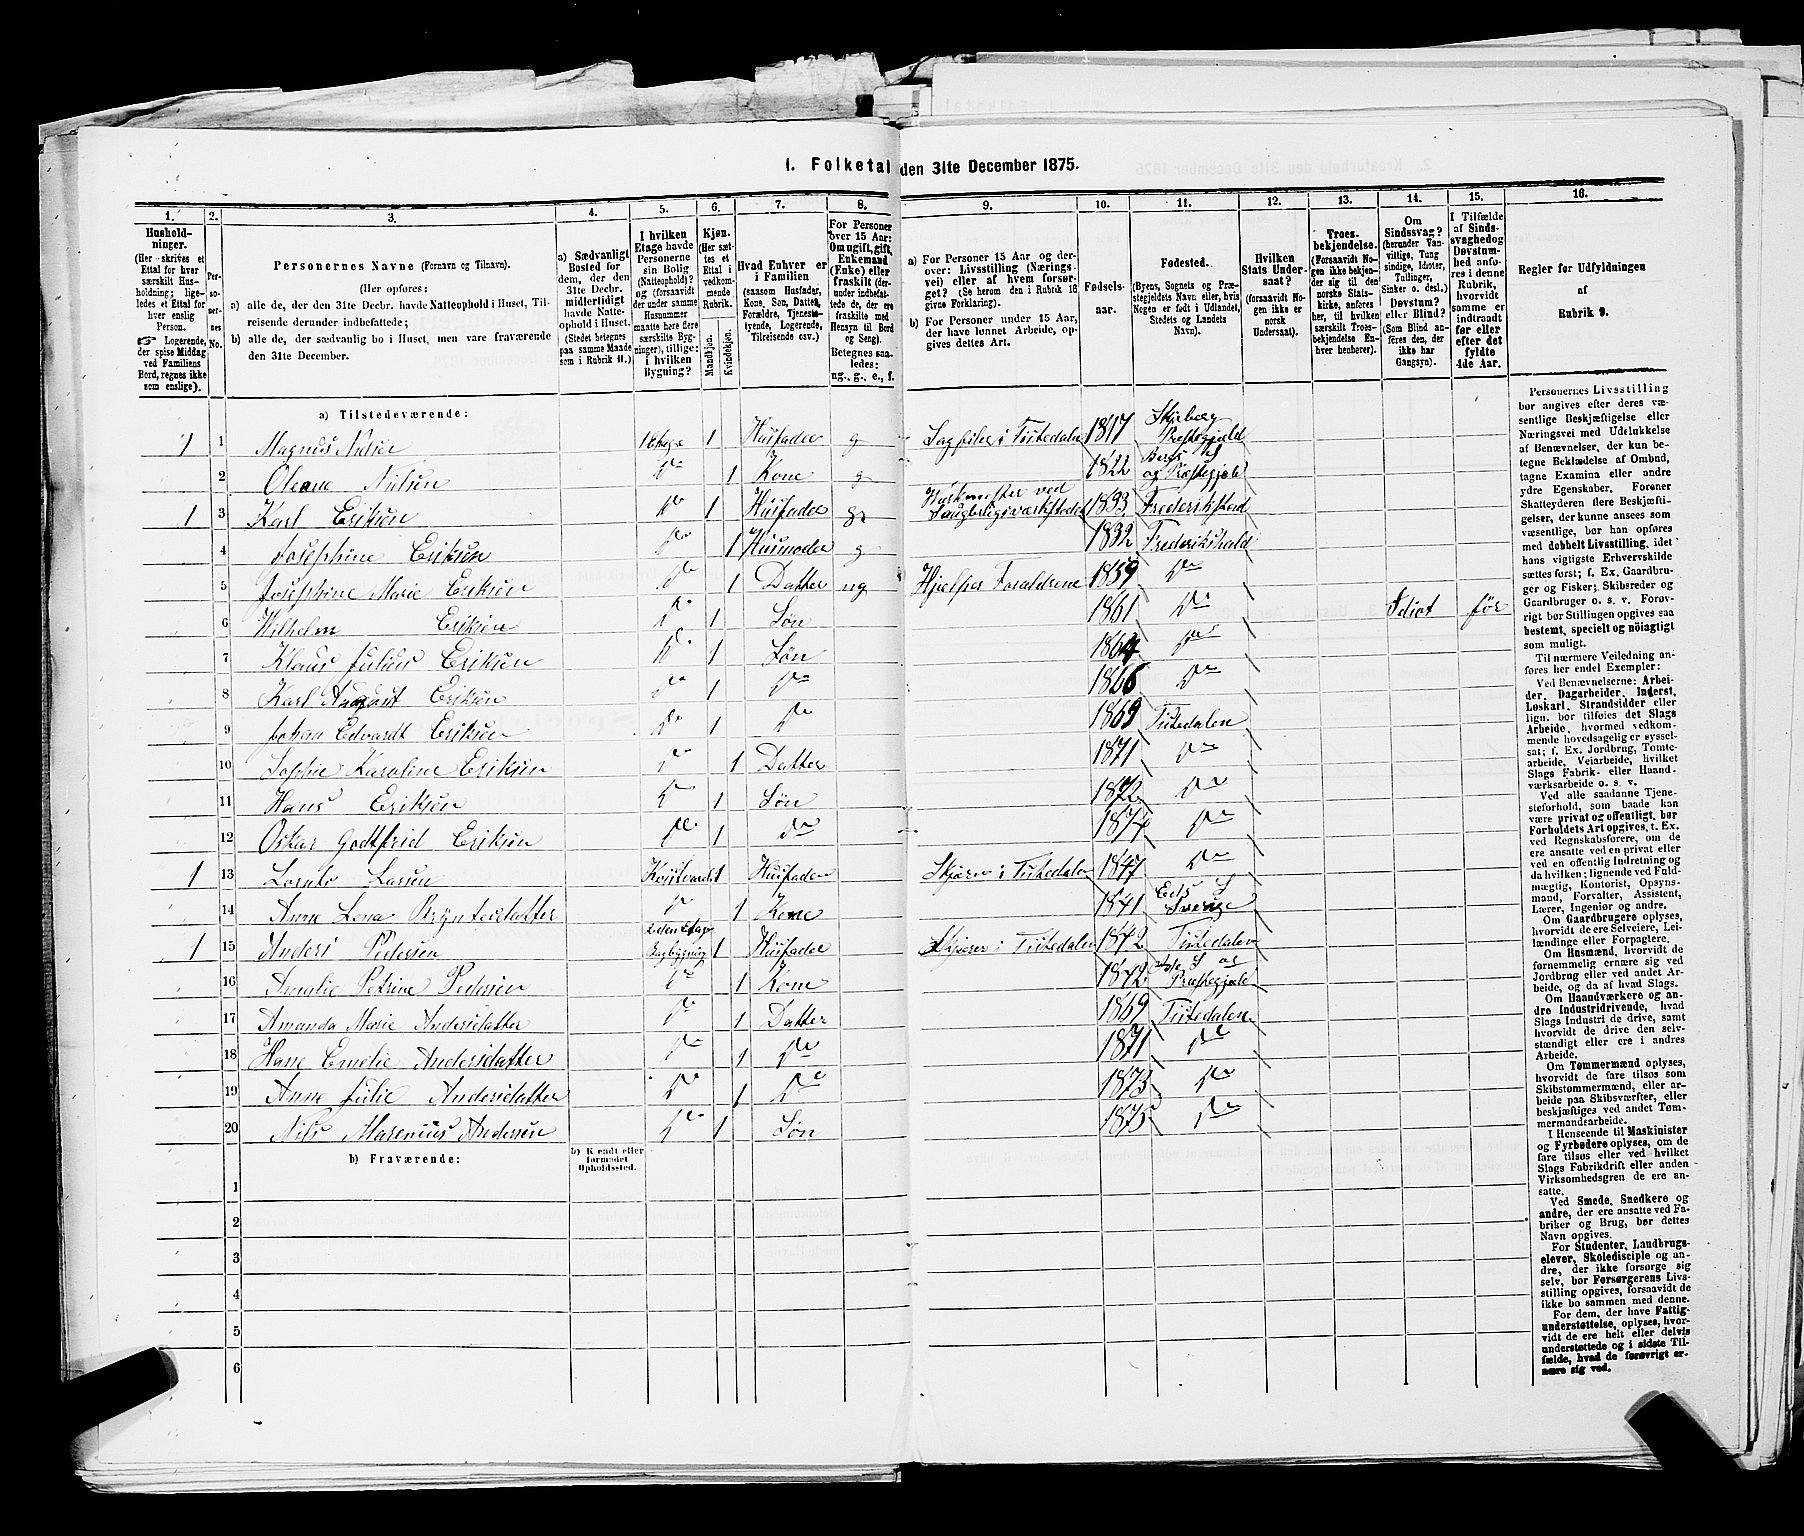 1. Folketal den 31te December 1875.
1. 2. 3. 4. 5. 6. 7. 8. 9. 10. 11. 12. 13. 14. 15. 16.
Hushold-
ninger.
(Her skrives et
Ettal for hver
særskilt Hus-
holdning; lige-
ledes et Ettal for
hver enslig
Person.
Logerende,
der spise Middag
ved Familiens
Bord, regnes ikke
som enslige).
Per-
so-
ner-
nes
No.
Personernes Navne (Fornavn og Tilnavn).
(Her opføres:
a) alle de, der den 31te Decbr. havde Natteophold i Huset, Til-
reisende derunder indbefattede;
b) alle de, der sædvanlig bo i Huset, men vare fraværende
den 31te December.
a) Sædvanligt
Bosted for
dem, der den
31te Decbr.
midlertidigt
havde Natte-
ophold i Huset.
(Stedet betegnes
paa samme Maade
som i Rubrik 11.)
I hvilken
Etage havde
Personerne
sin Bolig
(Natteophold)?
og (forsaavidt
der under samme
Husnummer
maatte høre flere
særskilte Byg-
ninger), tillige:
i hvilken
Bygning?
Kjøn.
(Her sæt-
tes et
Ettal i
vedkom-
mende
Rubrik.
Mandkjøn.
Kvindekjøn.
Hvad Enhver er
i Familien
(saasom Husfader,
Kone, Søn, Datter,
Forældre, Tjeneste-
tyende, Logerende,
Tilreisende osv.)
For Personer
over 15 Aar:
Om ugift, gift,
Enkemand
(Enke) eller
fraskilt (der-
under indbefat-
tede de, der ere
fraskilte med
Hensyn til Bord
og Seng).
Betegnes saa-
ledes:
ug., g., e., f.
a) For Personer 15 Aar og der-
over: Livsstilling (Nærings-
vei) eller af hvem forsør-
get? (Se herom den i Rubrik 16
givne Forklaring).
b) For Personer under 15 Aar,
der have lønnet Arbeide, op-
gives dettes Art.
Fødsels-
aar.
Fødested.
(Byens, Sognets og Præ-
stegjeldets Navn eller, hvis
Nogen er født i Udlandet,
Stedets og Landets
Navn).
Hvilken
Stats Under-
saat?
(forsaavidt No-
gen ikke er
norsk
Undersaat).
Troes-
bekjendelse.
(Forsaavidt No-
gen ikke bekjen-
der sig til den
norske Stats-
kirke, anføres
her, til hvilken
særskilt Troes-
bekjendelse En-
hver henhører).
Om
Sindssvag?
(herunder Van-
vittige, Tung-
sindige, Idioter,
Tullinger,
Sinker o. desl.)
Døvstum?
eller Blind?
(Som Blind an-
føres den, der
ikke har
Gangsyn).
I Tilfælde
af Sinds-
svaghed og
Døvstum-
hed anfø-
res i denne
Rubrik,
hvorvidt
samme er
indtraadt
før eller
efter det
fyldte
4de Aar.
Regler for Udfyldningen
af
Rubrik 9.
a) Tilstedeværende:
1 1 Magnus Nilsen 1 Etage 1 Husfader g Sagfiler i Tistedalen 1817 Skjeberg Præstegjæld
2 Oleane Nilsen Do 1 Kone g 1822 Bergs og Præstegjeld
1 3 Karl Eriksen Do 1 Husfader g ved 1833 Frederikstad
4 Josephine Eriksen Do 1 Husmoder g 1832 Frederikshald
5 Josephine Marie Eriksen Do 1 Datter ug Hjælper Forældrene 1859 Do
6 Wilhelm Eriksen Do 1 Søn 1861 Do Idiot før
7 Klaus Julius Eriksen Do 1 Søn 1864 Do
8 Karl August Eriksen Do 1 Do 1866 Do
9 Johan Edvardt Eriksen Do 1 Do 1869 Tistedalen
10 Sophie Karoline Eriksen Do 1 Datter 1871 Do
11 Hans Eriksen Do 1 Søn 1872 Do
12 Oskar Godtfrid Eriksen Do 1 Do 1874 Do
1 13 Lornts Larsen 1 Husfader Skjærer i Tistedalen 1847 Do
14 Anne Lena Bryntesdatter Do 1 Kone 1841 Eds S Sverige
1 15 Anders Pedersen 1 Husfader Skjærer i Tistedalen 1842 Tistedalen
16 Amalie Petrine Pedersen Do 1 Kone 1842 S og Præstegjæld
17 Amanda Marie Andersdatter Do 1 Datter 1869 Tistedalen
18 Hane Emelie Andersdatter Do 1 Do 1871 Do
19 Anne Julie Andersdatter Do 1 Do 1873 Do
20 Nils Marenius Andersen Do 1 Søn 1875 Do
b) Fraværende:
b) Kjendt eller
formodet
Opholdssted.
1
2
3
4
5
6
Personernes Livsstilling
bør angives efter deres væ-
sentlige Beskjæftigelse eller
Næringsvei med Udelukkelse
af Benævnelser, der kun be-
tegne Beklædelse af Ombud,
tagne Examina eller andre
ydre Egenskaber. Forener
Skatteyderen flere Beskjæfti-
gelser, der kunne ansees som
væsentlige, bør han opføres
med dobbelt Livsstilling, idet
hans vigtigste Erhvervskilde
sættes først; f. Ex. Gaardbru-
ger og Fisker; Skibsreder og
Gaardbruger o. s. v. Forøv-
rigt bør Stillingen opgives saa
bestemt, specielt og nöiagtigt
som muligt.
Til nærmere Veiledning an-
føres her endel Exempler:
Ved Benævnelserne: Arbei-
der, Dagarbeider, Inderst,
Løskarl, Strandsidder eller
lign. bør tilføies det Slags
Arbeide, hvormed vedkom-
mende hovedsagelig er syssel-
sat; f. Ex. Jordbrug, Tomte-
arbeide, Veiarbeide, hvilket
Slags Fabrik- eller Haand-
værksarbeide o. s. v.
Ved alle saadanne Tjene-
steforhold, som baade kan
være privat og offentligt, bør
Forholdets Art opgives, t. Ex.
ved Regnskabsførere, om de
ere ansatte ved en privat eller
ved en offentlig Indretning og
da hvilken; lignende ved Fuld-
mægtig, Kontorist, Opsyns-
mand, Forvalter, Assistent,
Lærer, Ingeniør og andre.
Om Gaardbrugere oplyses,
hvorvidt de ere Selveiere, Lei-
lændinge eller Forpagtere.
Om Husmænd, hvorvidt de
fornemmelig ernære sig ved
Jordbrug eller ved andet Ar-
beide, og da af hvad Slags.
Om Haandværkere og an-
dre Industridrivende, hvad
Slags Industri de drive, samt
hvorvidt de drive den selv-
stændigt eller ere i andres
Arbeide.
Om Tømmermænd oplyses,
hvorvidt de fare tilsøs som
Skibstømmermænd, eller ar-
beide paa Skibsværfter, eller
beskjæftiges ved andet Tøm-
mermandsarbeide.
I Henseende til Maskinister
og Fyrbødere oplyses, om de
fare tilsøs eller ved hvilket
Slags Fabrikdrift eller anden
Virksomhedsgren de ere an-
satte.
Ved Smede, Snedkere og
andre, der ere ansatte ved Fa-
briker og Brug, bør dettes
Navn opgives.
For Studenter, Landbrugs-
elever, Skoledisciple og an-
dre, der ikke forsørge sig
selv, bør Forsørgerens Livs-
stilling opgives, forsaavidt de
ikke bo sammen med denne.
For dem, der have Fattig-
understøttelse, oplyses, hvor-
vidt de ere helt eller delvis
understøttede og i sidste Til-
fælde, hvad de forøvrigt er-
nære sig ved.